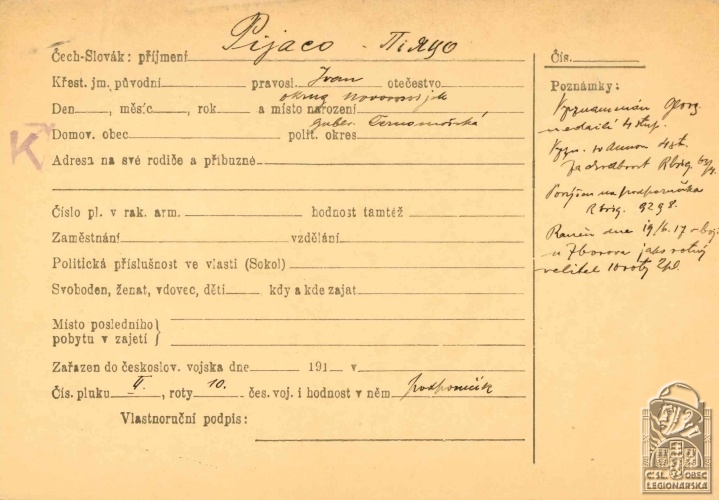 Čech-Slovák: příjmení Pijaco - Піяцо
Křest. jm. původní pravosl. Ivan otečestvo
Den, měsíc, rok a místo narození okrug Novorossijsk
Domov. obec polit. okres gubr. Černomořská
Adresa na své rodiče a příbuzné
Číslo pl. v rak. arm. hodnost tamtéž
Zaměstnání vzdělání
Politická příslušnost ve vlasti (Sokol)
Svoboden, ženat, vdovec, děti kdy a kde zajat
Místo posledního
pobytu v zajetí}
Zařazen do českoslov. vojska dne 191 v
Čís. pluku II., roty 10. čes. voj. i hodnost v něm podporučík
Vlastnoruční podpis:
Čís.
Poznámky:
Vyznamenán Georg.
medailí 4 stup.
Vyzn. 4 st.
Za chrabrost Rbrig.
Povýšen na podporučíka
Rbrig. 9298.
Raněn dne 19/6.17 v boji
u Zborova jako rotný
velitel 10 roty 2 pl.
K
ČSL. OBEC
LEGIONÁŘSKÁ